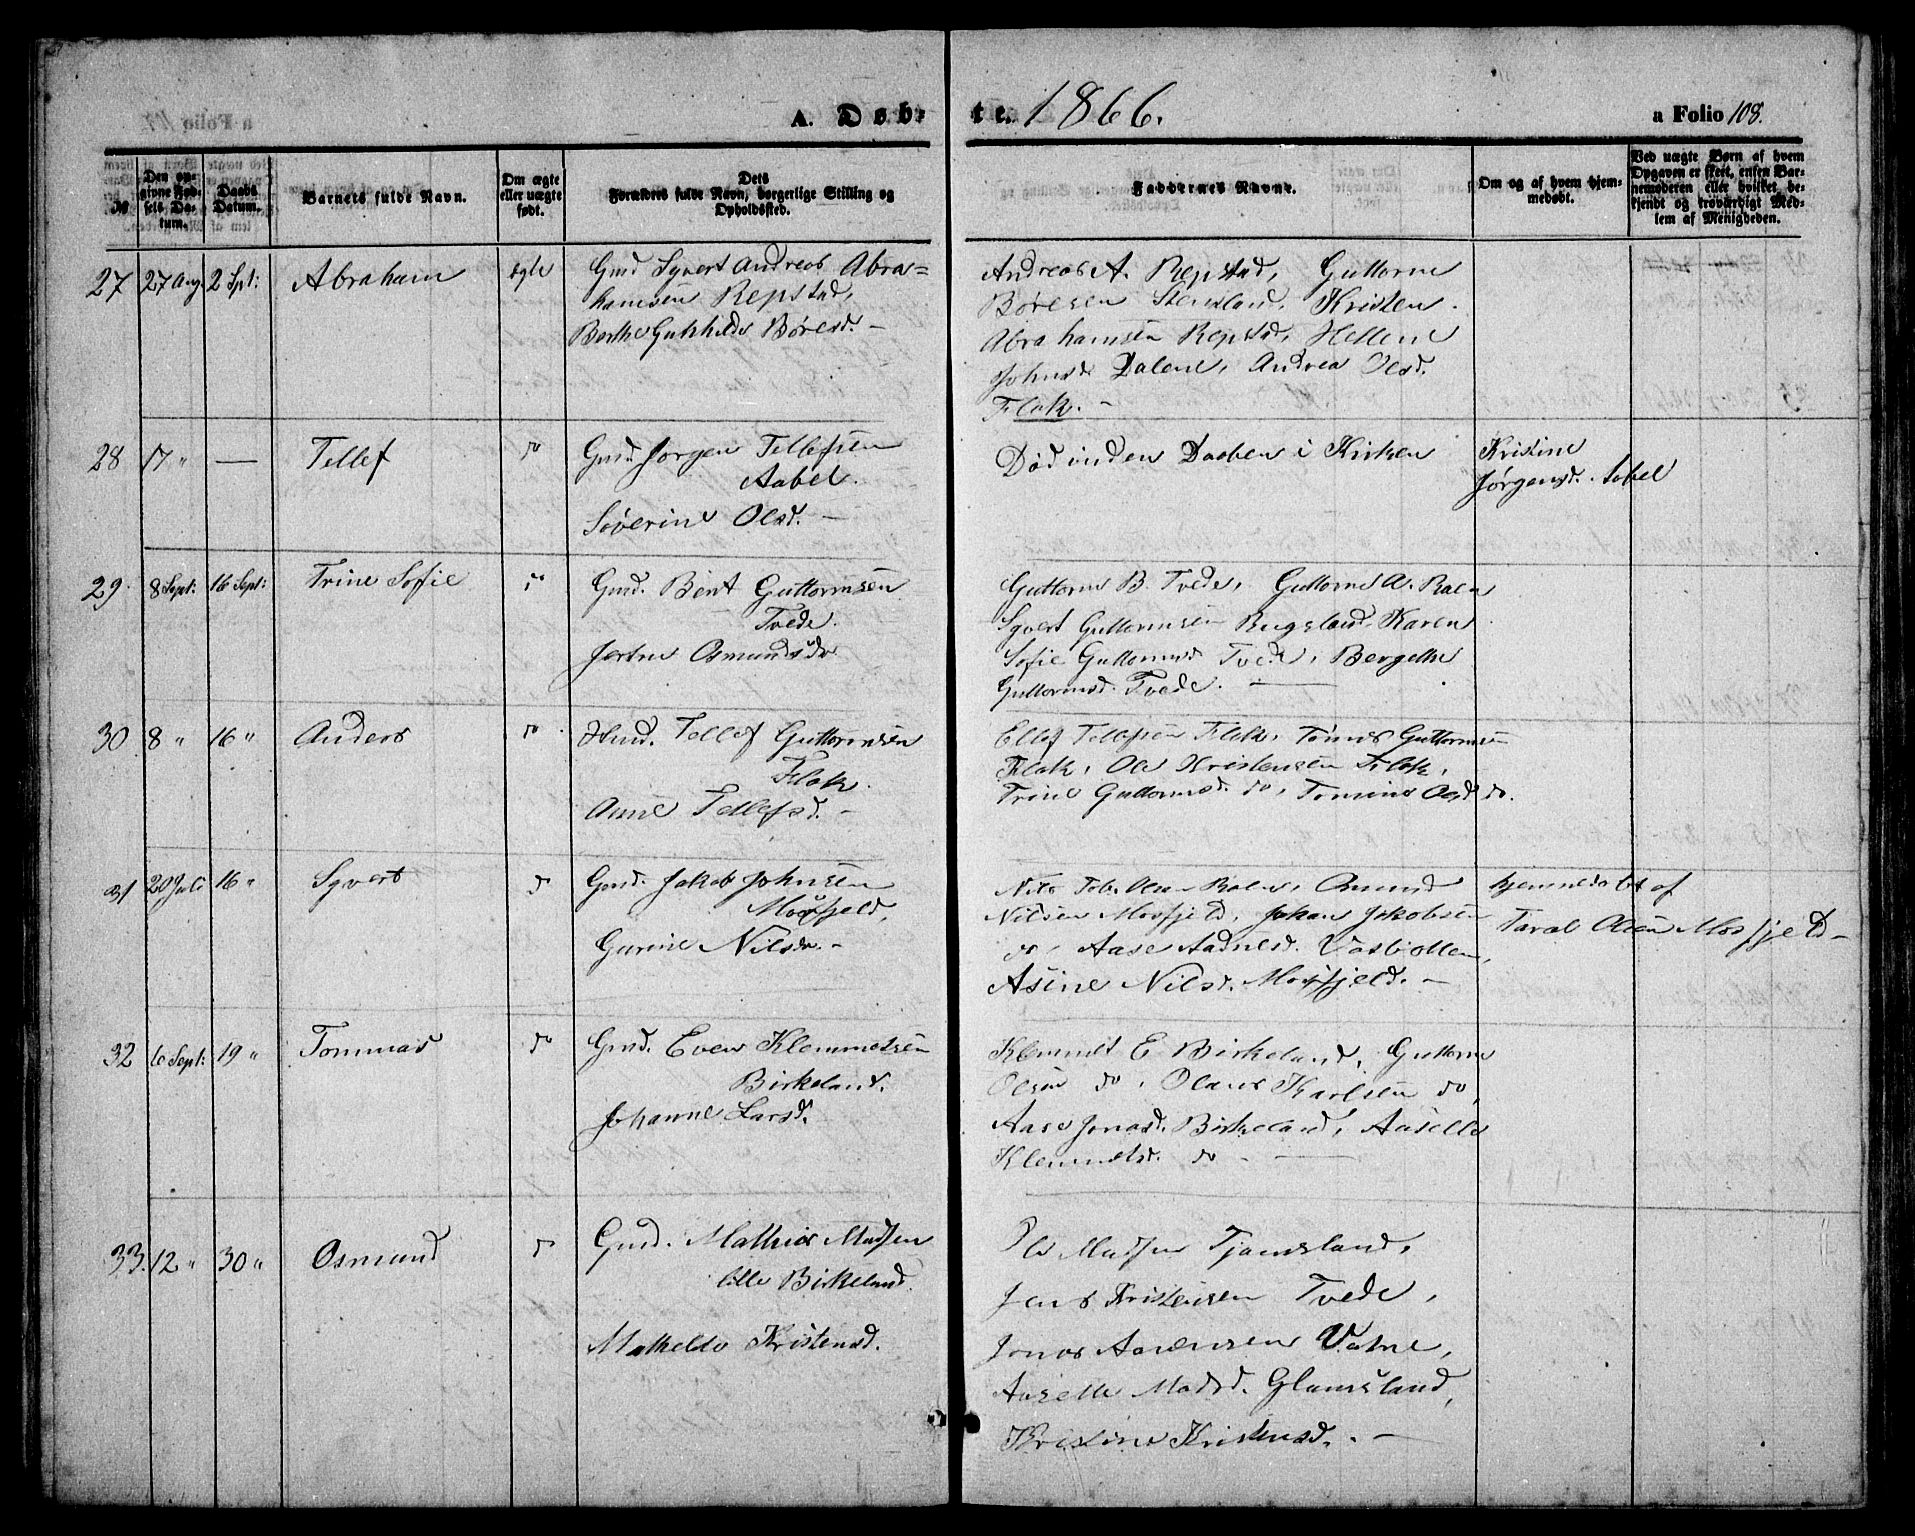 A. Døb-
te. 1866.
a Folio 108.
№
Den op-
givne Fød-
sels Da-
tum.
Daabs
Datum.
Barnets fulde Navn.
Om ægte
eller uægte
født.
Dets
Forældres fulde Navn, borgerlige Stilling og
Opholdssted.
Faddernes Navne.
Om og af hvem hjem-
medøbt.
Ved uægte Børn af hvem
Opgaven er skeet, enten Bar-
nemoderen eller hvilket be-
kjendt og troværdigt Med-
lem af Menigheden.
27 27 Aug. 2 Spt: Abraham ægte
Gmd Syvert Andreas Abra=
hamsen Repstad,
Berthe Gunhilde Børesd. –
Andreas A. Repstad, Guttorm
Børesen Stensland, Kristen
Abrahamsen Repstad, Hellene
Johnsd Dalene, Andrea Olsd.
Flak. –
28 17 " — Tellef do
Gmd. Jørgen Tellefsen
Aabel.
Søverine Olsd. –
Død inden Daaben i Kirken
Kristine
Jørgensd. Aabel
29. 8 Sept: 16 Sept: Trine Sofie do
Gmd. Bent Guttormsen
Tvede.
Jertru Osmundsdr.
Guttorm B. Tvede, Guttorm A. Raen
Syvert Guttormsen Rugsland, Karen
Sofie Guttormsd Tvede, Bergethe
Guttormsd. Tvede. —
30 8 " 16 " Anders do
Hmd. Tellef Guttormsen
Flak.
Anne Tellefsd. –
Ellef Tellefsen Flak, Tønnes Guttormsen
Flak, Ole Kristensen Flak,
Trine Guttormsd. do, Tomine Olsd do.
31 20 Juli 16 " Syvert do
Gmd. Jakob Johnsen
Mosfjeld,
Gurine Nilsdr. –
Nils Tob. Olsen Osmund
Nilsen Mosfjeld, Johan Jakobsen
do, Aase Aadnesd. Vasbotten,
Asine Nilsd. Mosfjeld. –
hjemmedøbt af
Taral Olsen Mosfjeld –
32 6 Sept: 19 " Tommas do
Gmd. Even Klemmetsen
Birkeland.
Johanne Larsd.
Klemmet E Birkeland, Guttorm
Olsen do, Olaus Karlsen do,
Aase Jonasd. Birkeland, Aaselle
Klemmetsd. do – —
33. 12 " 30 " Osmund do
Gmd. Mathias Madsen
lille Birkeland.
Mathilde Kristensd.
Ole Madsen Tjomsland,
Jens Kristensen Tvede,
Jonas Aanensen Vatne,
Aaselle Madsd. Glamsland,
Kristine Kristensd. –